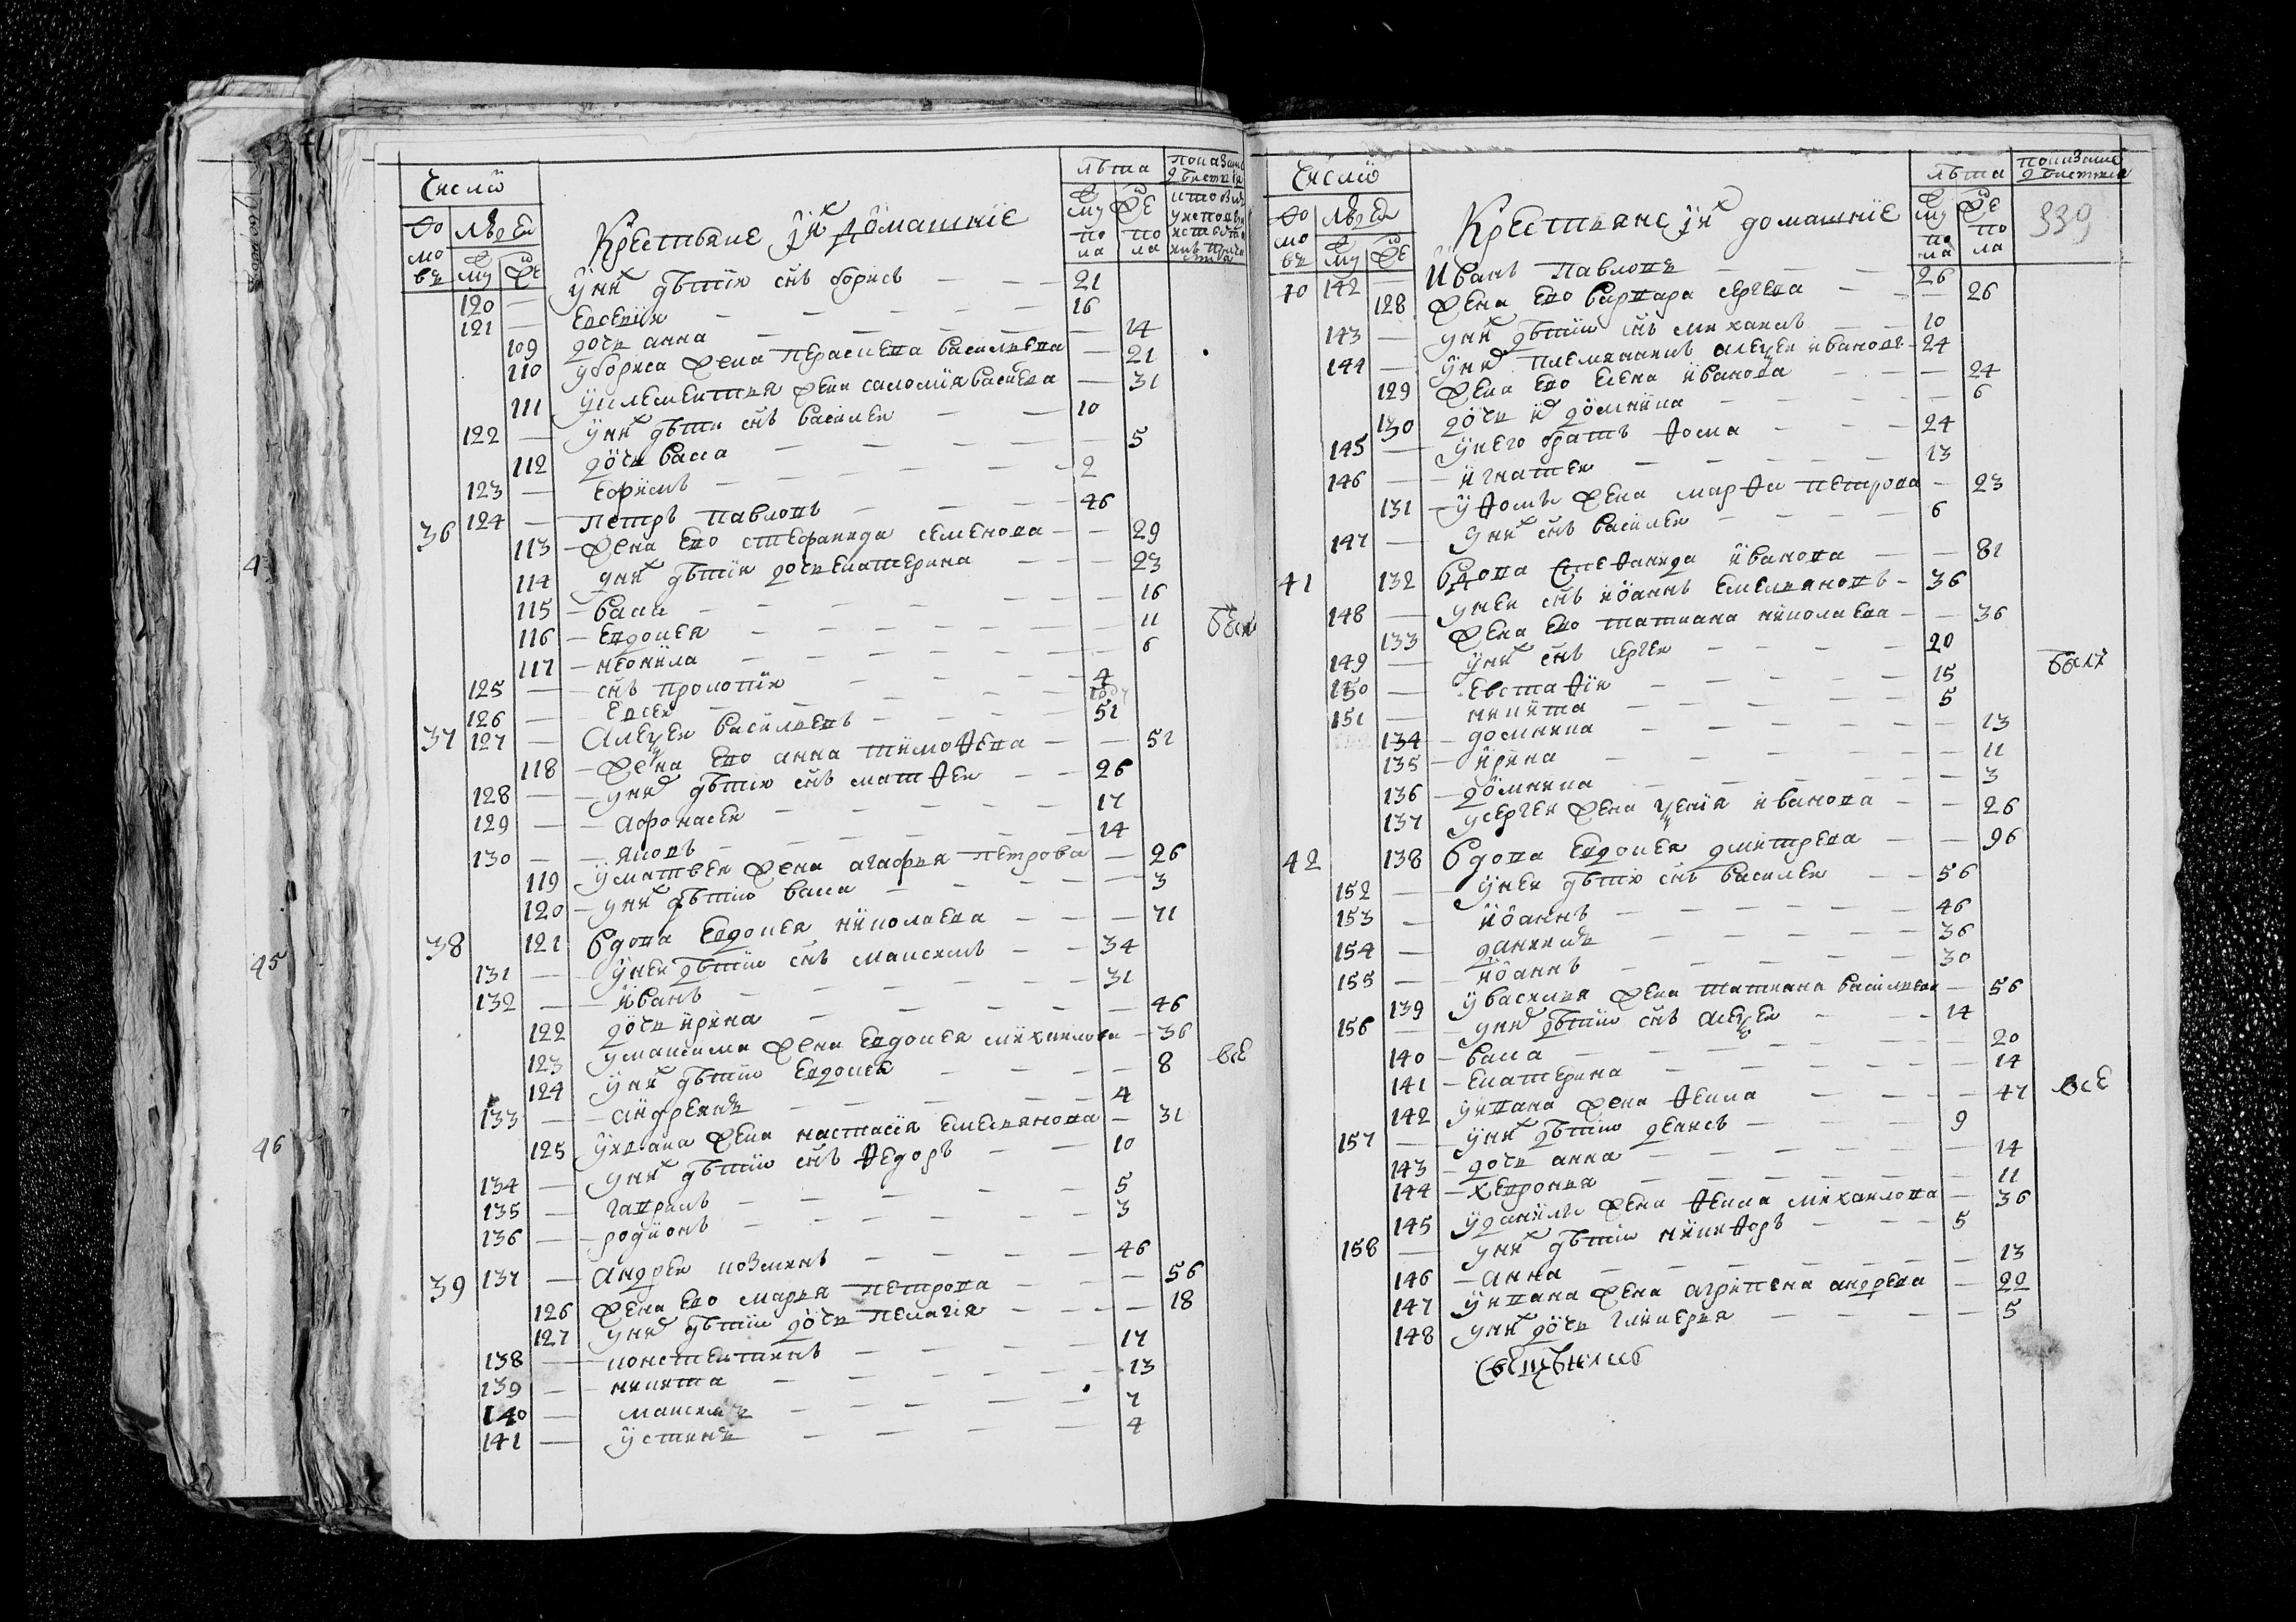 Число
лѣта
Крестьяне и ихъ домашніе
120 — у них дѣти снъ борисъ — 21
121 — евсевiи — 16
109 дочь анна — 14
110 у бориса жена перасцева василиева — 21
111 у климентия жена саломия васиева — 31
122 — у них дѣти снъ василеи — 10
112 дочь васса — 5
123 — ефимъ — 2
36 124 — петръ павловъ — 46
113 жена ево стефанида семенова — 29
114 у них дѣти дочь екатерина — 23
115 васса — 16
116 евдокея — 11
117 неонила — 6
125 — снъ прокопiи — 4
126 — евсеи
37 127 — алеѯеи василиевъ — 51
118 жена ево анна тимоѳева — 51
128 — у них дѣти снъ матѳеи — 26
129 — афонасеи — 17
130 — яковъ — 14
119 у матвея жена агафья петрова — 26
120 у них дѣти васса — 3
38 121 вдова евдокея николаева — 71
131 — у неи дѣти снъ максимъ — 34
132 — иванъ — 31
122 дочь ирина — 46
123 у максима жена евдокея михаилова — 36
124 у них дѣти евдокея — 8
все
133 — андреянъ — 4
125 у ивана жена настасiя емелиянова — 31
134 — у них дѣти снъ ѳедоръ — 10
135 — гаврилъ — 5
136 — родионъ — 3
39 137 — андреи козминъ — 46
126 жена ево марья петрова — 56
127 у них дѣти дочь пелагiя — 18
138 — константинъ — 17
139 — никита — 13
140 — максимъ — 7
141 — устинъ — 4
45
46
Число
лѣта
339
Крестьяне и ихъ домашніе
40 142 — иванъ павловъ — 26
128 жена ево варвара сергева — 26
143 — у них дѣти снъ михаилъ — 10
144 — у них племянникъ алеѯеи ивановъ — 24
129 жена ево елена иванова — 24
130 дочь их домника — 6
145 — у него братъ ѳома — 24
146 — игнатеи — 13
131 у ѳомы жена марѳа петрова — 23
147 — у них снъ василеи — 6
41 132 вдова стеѳанида иванова — 81
148 — у неи снъ иоаннъ емелияновъ — 36
133 жена ево татиана николаева — 36
149 — у них снъ сергеи — 20
150 — евстаѳiи — 15
151 — никита — 5
134 домника — 13
135 ирина — 11
136 домника — 3
137 у сергея жена ѯенiя иванова — 26
42 138 вдова евдокея дмитрева — 96
152 — у неи дѣти снъ василеи — 56
153 — иоаннъ — 46
154 — данилъ — 36
155 — иоаннъ — 30
139 у василия жена татиана василиева — 56
156 — у них дѣти снъ алеѯеи — 14
140 васса — 20
141 екатерина — 14
142 у ивана жена ѳекла — 47
все
157 — у них дѣти денисъ — 9
143 дочь анна — 14
144 хеврония — 11
145 у данилы жена ѳекла михаилова — 36
158 — у них дѣти никиѳоръ — 5
146 анна — 13
147 у ивана жена агрипена андрева — 22
148 у них дочь гликерия — 5